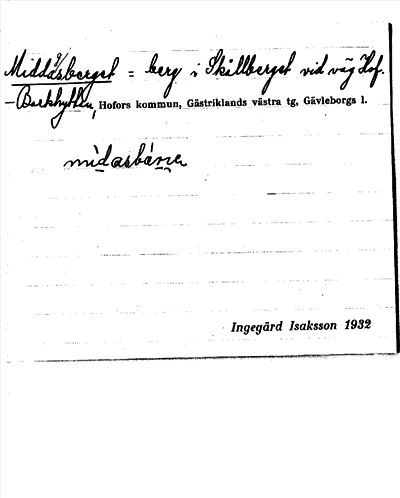 Middagsberget = berg i Skillberget vid väg Hof.
- Barkhyttan, Hofors kommun, Gästriklands västra tg, Gävleborgs l.
Ingegärd Isaksson 1932